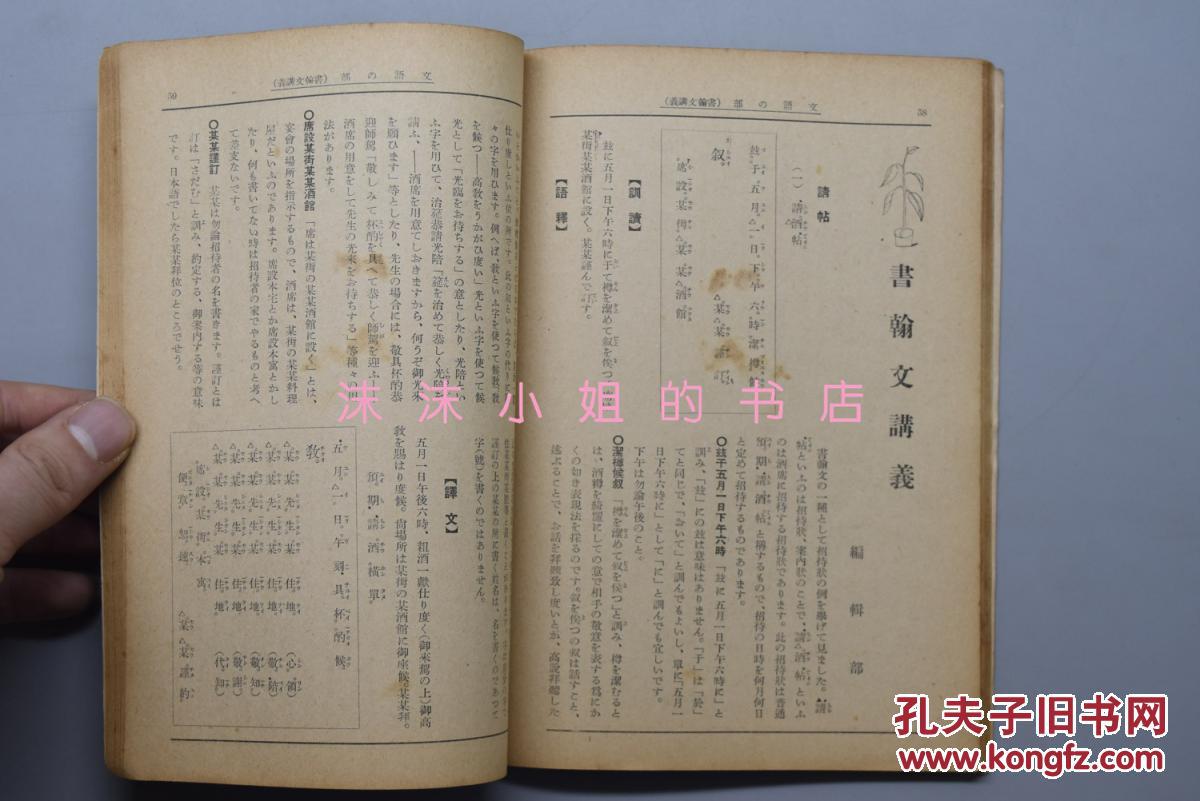 文語の部（書翰文講義）
58
書翰文講義
編輯部
書翰文の一種として招待狀の例を擧げて見ました。請
帖といふのは招待狀、案內狀のことで、請酒帖といふ
のは酒席に招待する招待狀であります。此の招待狀は普通
預期請酒帖と稱するもので、招待の日時を何月何日
と定めて招待するものであります。
請帖
（一）請酒帖
玆于五月△一日下午六時潔樽候
叙
△某△某謹訂
席設某街△某△某酒館
【訓讀】
玆に五月一日下午六時に于て樽を潔めて叙を俟つ
某街某某酒館に設く。某某謹んで訂す。
【語釋】
〇玆于五月一日下午六時　「玆に五月一日下午六時に」と
訓み、「玆」にの玆は意味はありません。「于」は「於」
てと同じで、「おいて」と訓んでもよいし、單に「五月一
日下午六時に」として「に」と訓んでも宜しいです。
下午は勿論午後のこと。
〇潔樽候叙　「樽を潔めて叙を俟つ」と訓み、樽を潔むると
は、酒樽を綺麗にしての意で相手の敬意を表する爲にか
くの如き表現法を採るのです。叙を俟つの叙は話すこと、
述ぶることで、お話を拜聽致し度いとか、高說拜聽した
文語の部（書翰文講義）
59
々の字を用ひます。例へば、敎といふ字を使つて候敎、敎
を候つ——高敎をうかがひ度い」光といふ字を使つて候
光として「光臨をお待ちする」の意としたり、光陪とい
ふ字を用ひて、治筵恭請光陪「筵を治めて恭しく光陪を
請ふ、——酒席を用意しておきますから、何うぞ御光來
を願ひます」等としたり、先生の場合には、敬具杯酌恭
迎師駕「敬しみて杯酌を具へて恭しく師駕を迎ふ、
酒席の用意をして先生の光來をお待ちする」等種々の用
法があります。
〇席設某街某某酒館　「席は某街の某某酒館に設く」とは、
宴會の場所を指示するもので、酒席は、某街の某某料理
屋だといふのであります。席設本宅とか席設本寓とかし
たり、何も書いてない時は招待者の家でやるものと考へ
て差支ないです。
〇某某謹訂　某某は勿論招待者の名を書きます。謹訂とは
訂は「さだむ」と訓み、約定する、御案內する等の意味
です。日本語でしたら某某拜位のところでせう。
謹訂の上の某某の所に書く姓名は、名を書くのであつて
字（號）を書くのではありません。
【譯文】
五月一日午後六時、粗酒一獻仕り度く（御來駕の上）御高
敎を賜はり度候。尙場所は某街の某酒館に御座候。某某拜。
預期請酒橫單
五月△一日午刻具杯酌候
敎
△某先生某　住地。（心領）
△某先生某　住地。（敬陪）
△某先生某　住地。（敬知）
△某先生某　住地。（敬謝）
△某先生某　住地。（代知）
席設某街本寓
便章恕速　△某△某謹約
沫沫小姐的书店
孔夫子旧书网
www.kongfz.com